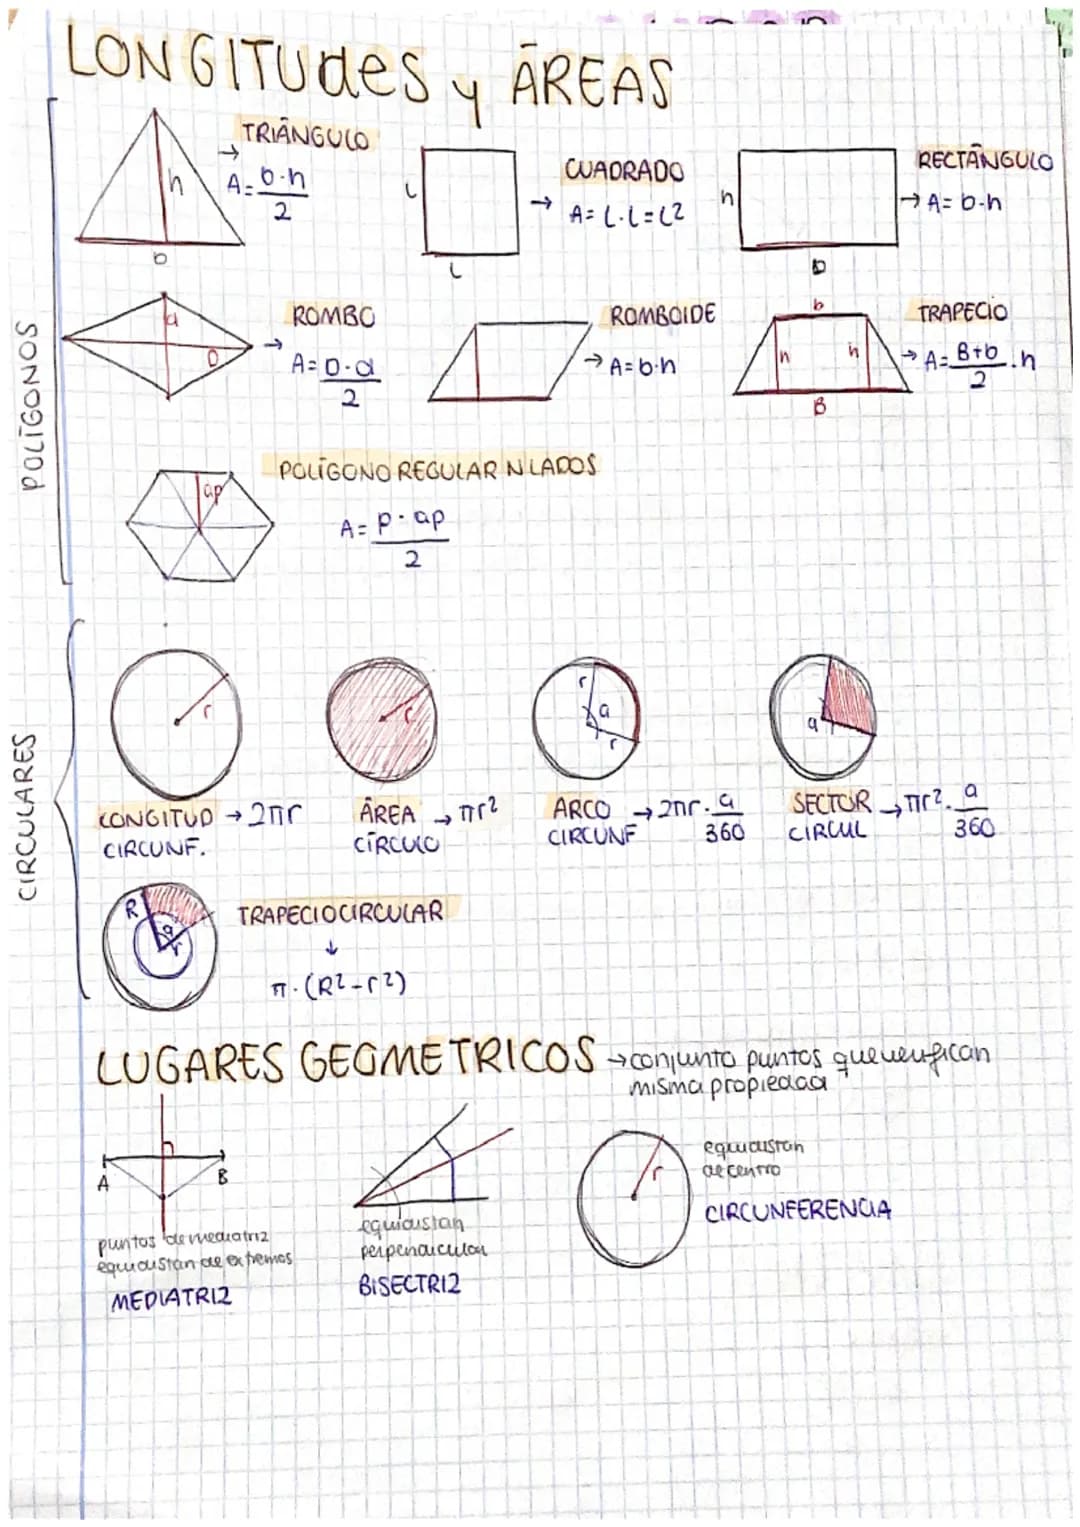 LONGITUdes y ÁREAS
POLÍGONOS
TRIÁNGULO
→ A = b·h / 2
h
b
CUADRADO
→ A = L·L = L²
L
L
RECTÁNGULO
→ A = b·h
h
b
ROMBO
→ A = D·d / 2
d
D
ROMBOIDE
→ A = b·h
TRAPECIO
→ A = B+b / 2 · h
b
h
h
B
POLÍGONO REGULAR N LADOS
A = p · ap / 2
ap
CIRCULARES
r
LONGITUD → 2πr
CIRCUNF.
r
ÁREA → πr²
CÍRCULO
r
a
r
ARCO → 2πr · a / 360
CIRCUNF
a
SECTOR → πr² · a / 360
CIRCUL
R
a
r
TRAPECIO CIRCULAR
↓
π · (R² - r²)
LUGARES GEOMETRICOS → conjunto puntos que verifican
misma propiedad
A
B
puntos de mediatriz
equidistan de extremos
MEDIATRIZ
equidistan
perpendicular
BISECTRIZ
r
equidistan
de centro
CIRCUNFERENCIA